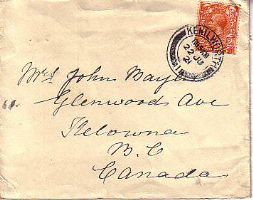 KENILWORTH
22 JU
Mrs John Mayer
Glenwoods Ave
Kelowna
B.C
Canada